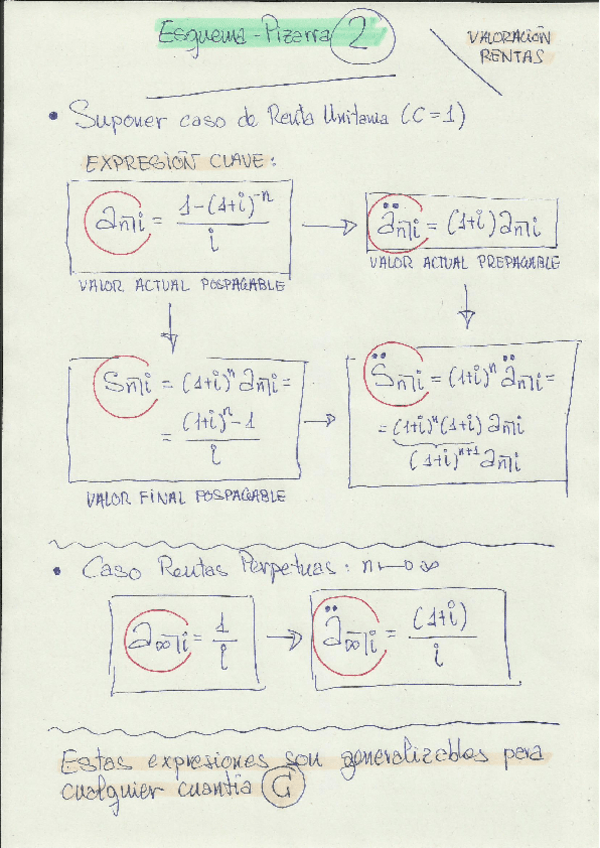 Esquema-Pizarra 2
VALORACIÓN
RENTAS
• Suponer caso de Renta Unitaria (C=1)
EXPRESIÓN CLAVE:
a_n̅|i = (1-(1+i)^-n)/i
ä_n̅|i = (1+i) a_n̅|i
VALOR ACTUAL POSPAGABLE
VALOR ACTUAL PREPAGABLE
S_n̅|i = (1+i)^n a_n̅|i =
= ((1+i)^n - 1)/i
S̈_n̅|i = (1+i)^n ä_n̅|i =
= (1+i)^n (1+i) a_n̅|i
(1+i)^n+1 a_n̅|i
VALOR FINAL POSPAGABLE
• Caso Rentas Perpetuas: n → ∞
a_∞̅|i = 1/i
ä_∞̅|i = (1+i)/i
Estas expresiones son generalizables para
cualquier cuantía C